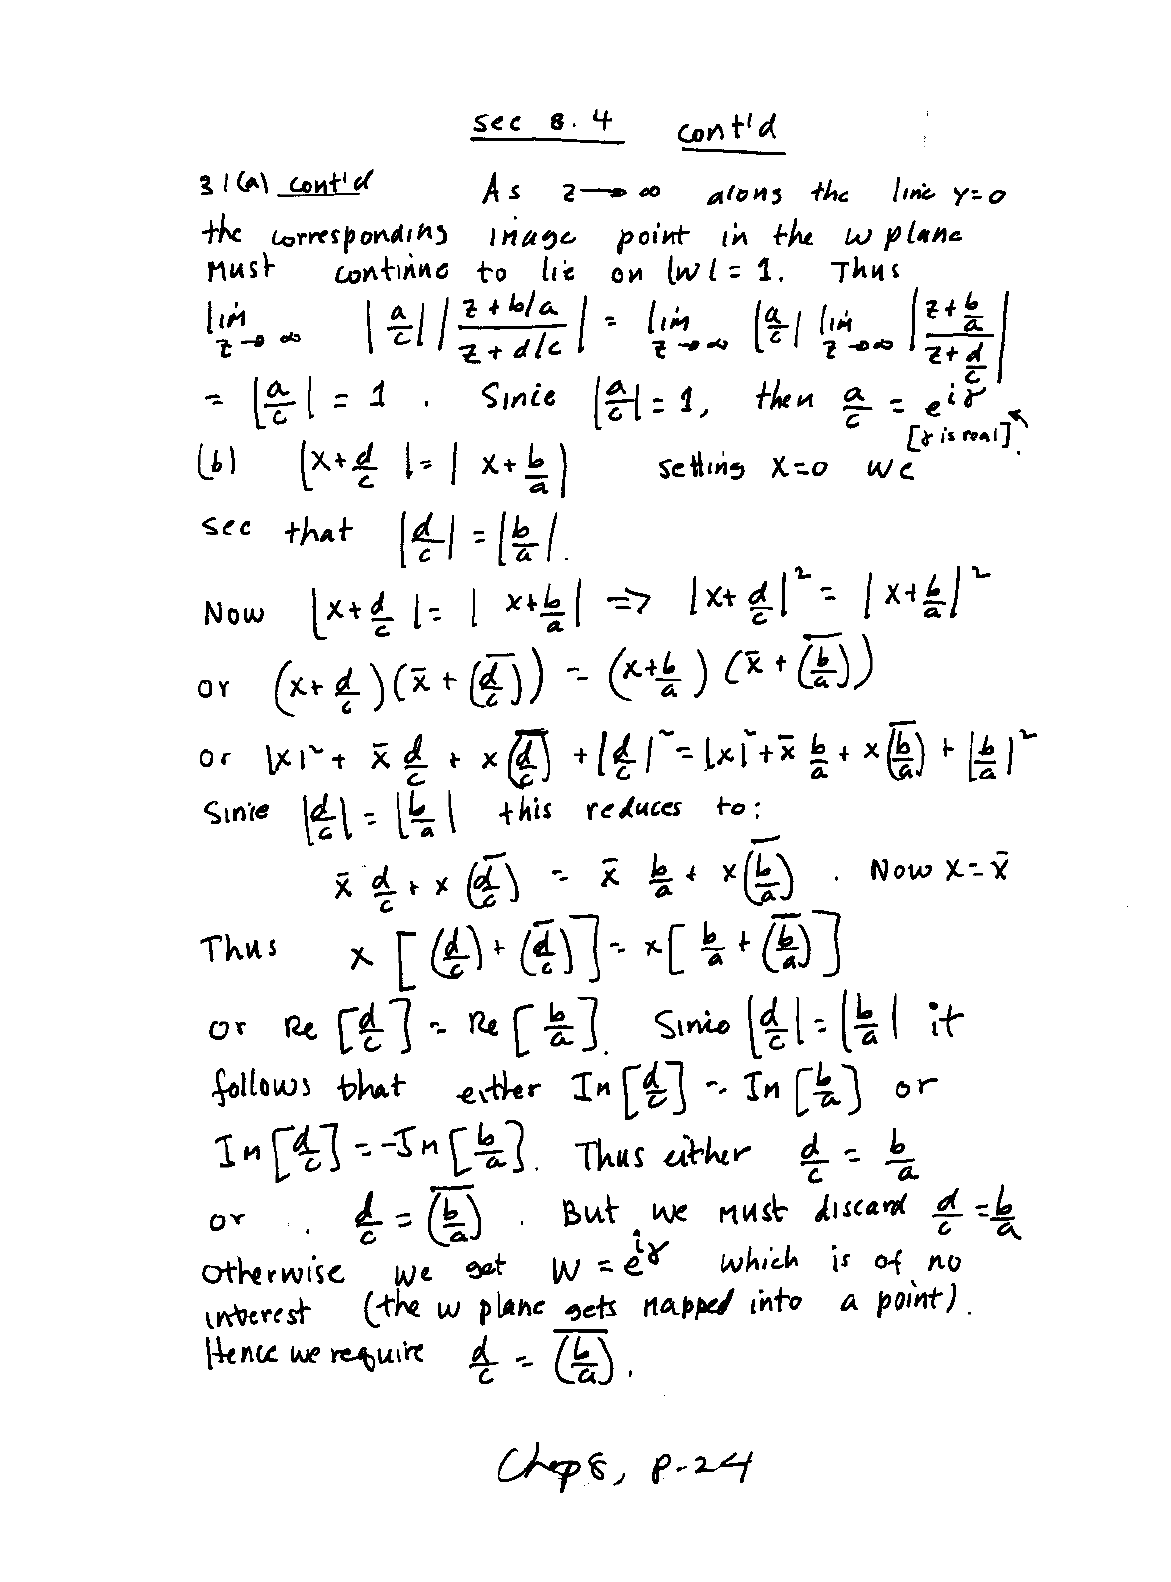 sec 8.4 cont'd
31(a) cont'd As z→∞ along the line y=0
the corresponding image point in the w plane
must continue to lie on |w|=1. Thus
lim z→∞ |a/c| |(z+b/a)/(z+d/c)| = lim z→∞ |a/c| lim z→∞ |(z+b/a)/(z+d/c)|
= |a/c| = 1. Since |a/c|=1, then a/c = e^{iγ}
[γ is real].
(b) |x+d/c| = |x+b/a| setting x=0 we
see that |d/c| = |b/a|.
Now |x+d/c| = |x+b/a| => |x+d/c|² = |x+b/a|²
or (x+d/c)(x̄+\overline{(d/c)}) = (x+b/a)(x̄+\overline{(b/a)})
or |x|² + x̄ d/c + x \overline{(d/c)} + |d/c|² = |x|² + x̄ b/a + x \overline{(b/a)} + |b/a|²
Since |d/c| = |b/a| this reduces to:
x̄ d/c + x \overline{(d/c)} = x̄ b/a + x \overline{(b/a)}. Now x=x̄
Thus x[(d/c)+\overline{(d/c)}] = x[b/a+\overline{(b/a)}]
or Re[d/c] = Re[b/a]. Since |d/c|=|b/a| it
follows that either Im[d/c] = Im[b/a] or
Im[d/c] = -Im[b/a]. Thus either d/c = b/a
or d/c = \overline{(b/a)}. But we must discard d/c = b/a
otherwise we get w = e^{iγ} which is of no
interest (the w plane gets mapped into a point).
Hence we require d/c = \overline{(b/a)}.
Chap 8, p-24